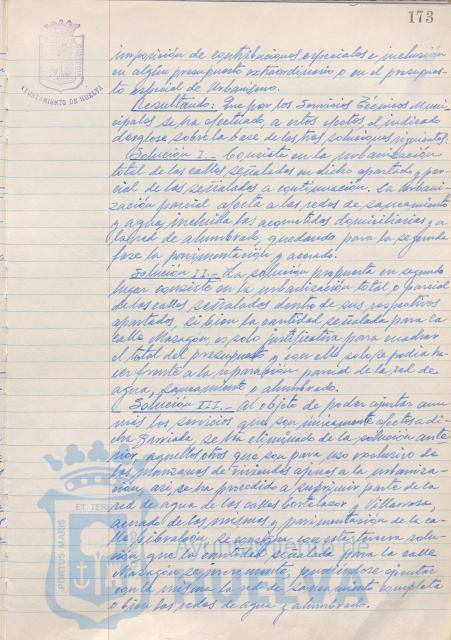 173
AYUNTAMIENTO DE HUELVA
imposición de contribuciones especiales e inclusión
en algún presupuesto extraordinario o en el presupues-
to especial de Urbanismo.
Resultando: Que por los Servicios Técnicos Muni-
cipales se ha efectuado, a estos efectos el indicado
desglose sobre la base de las tres soluciones siguientes:
Solución I.- Consiste en la urbanización
total de las calles señaladas en dicho apartado y par-
cial de las señaladas a continuación. La Urbani-
zación parcial afecta a las redes de saneamiento
y agua, incluida las acometidas domiciliarias y a
la red de alumbrado, quedando para la segunda
fase la pavimentación y acerado.
Solución II.- La solución propuesta en segundo
lugar consiste en la urbanización total o parcial
de las calles señaladas dentro de sus respectivos
apartados, si bien la cantidad señalada para la
calle Mazagón es solo justificativa para cuadrar
el total del presupuesto y con ello solo se podía ha-
cer frente a la reparación parcial de la red de
agua, saneamiento o alumbrado.
Solución III.- Al objeto de poder ajustar aun
más los servicios que son únicamente afectos a di-
cha Barriada, se ha eliminado de la solución ante-
rior, aquellas otras que son para uso exclusivo de
las manzanas de viviendas ajenas a la urbaniza-
ción, así, se ha procedido a suprimir parte de la
red de agua de las calles Cortelazor y Villarrasa,
acerado de las mismas y pavimentación de la ca-
lle Gibraleón, se consigue con esta tercera solu-
ción que la cantidad señalada para la calle
Mazagón se incremente, pudiéndose ejecutar
con la misma la red de saneamiento completa
o bien las redes de agua y alumbrado.
PORTUS MARIS
ET TERRAE
HUELVA